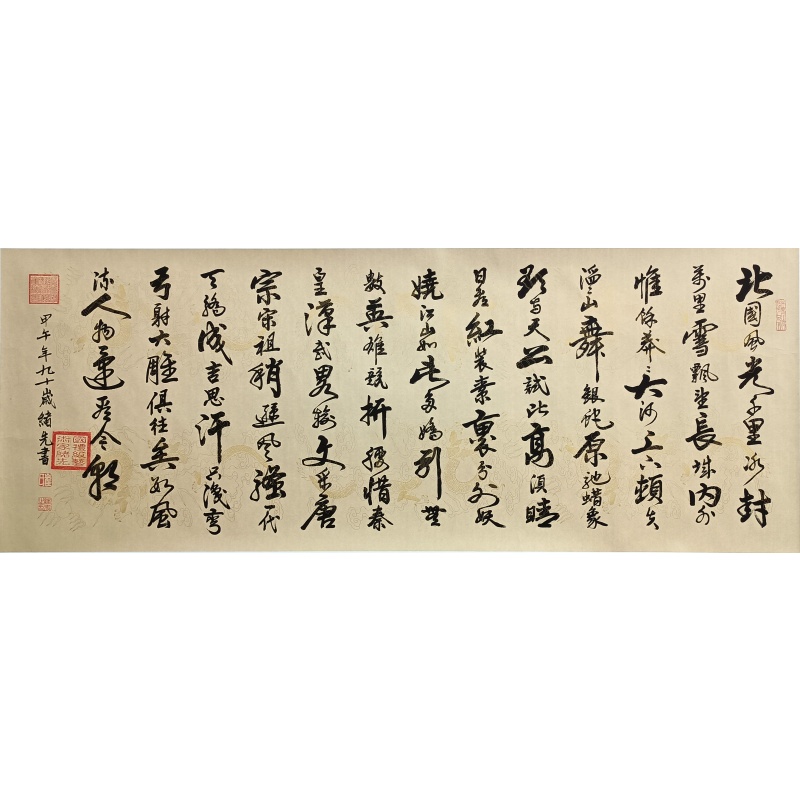 北國風光千里冰封
萬里雪飄望長城内外
惟餘莽〻大河上下頓失
滔山舞銀蛇原馳蜡象
欲与天公試比高須晴
日看紅裝素裹分外妖
嬈江山如此多嬌引無
數英雄競折腰惜秦
皇漢武略輸文采唐
宗宋祖稍遜風騷一代
天驕成吉思汗只識彎
弓射大雕俱往矣數風
流人物還看今朝
甲午年九十歲緒先書
國禮級藝術家緒先